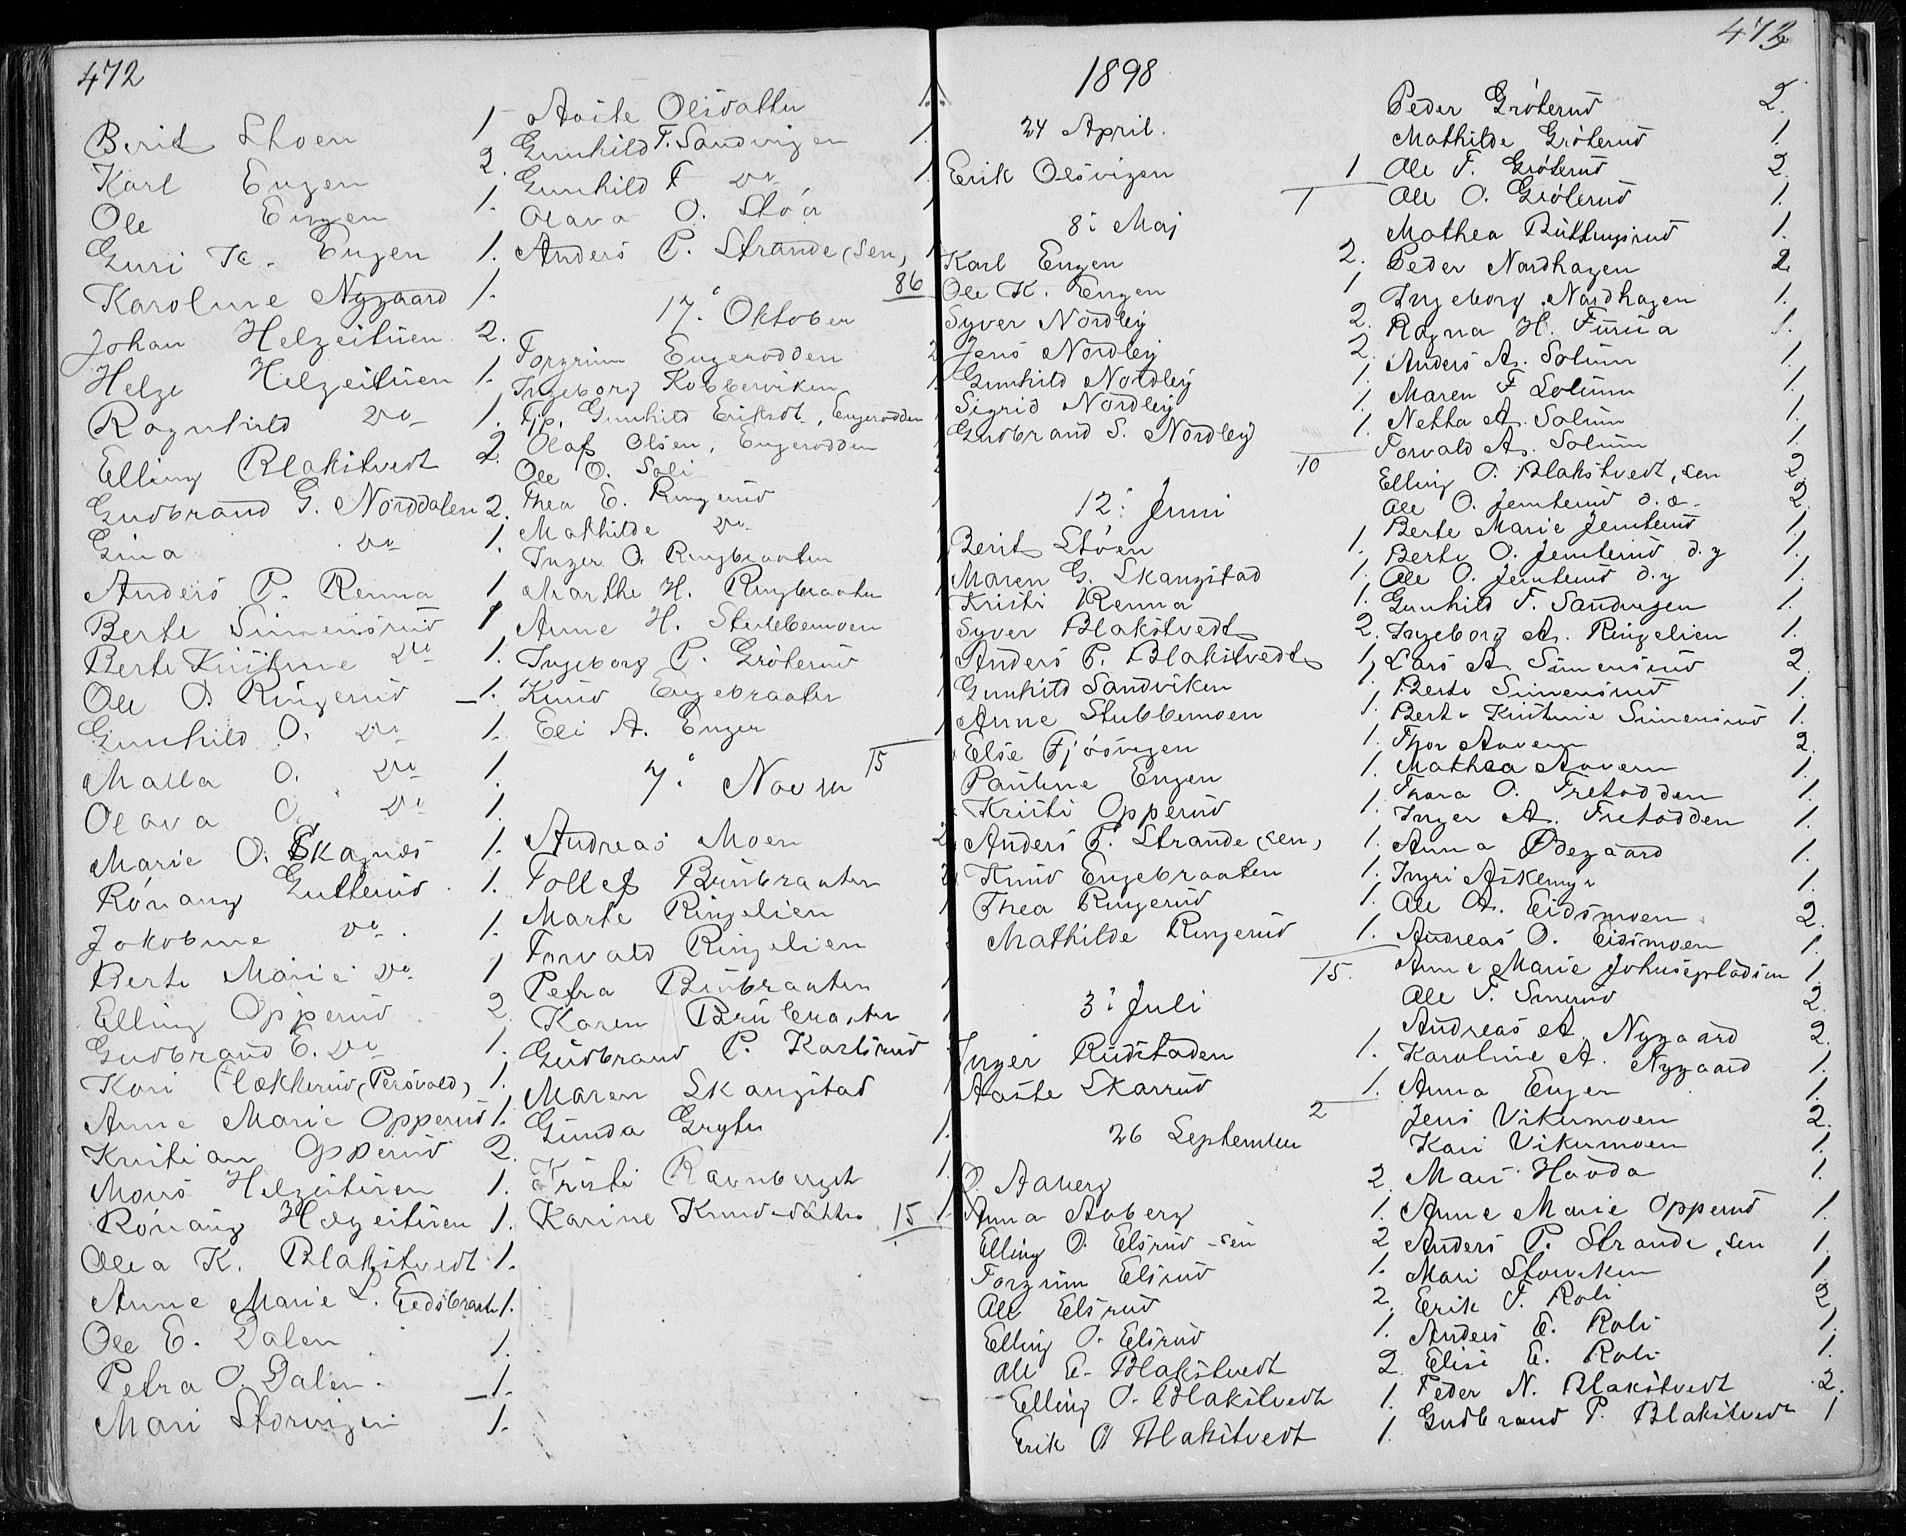 472
Berit Stoen 1
Karl Engen 2
Ole Engen 1.
Guri K. Engen 1.
Karoline Nygaard 1.
Johan Helgeituen 2.
Helge Helgeituen 1.
Ragnhild Do 1.
Elling Blakstvedt 2.
Gudbrand G. Norddalen 2.
Gina Do 1.
Anders P. Renna 1
Berte Simensrud 1
Berte Kristine Do 1.
Ole O. Ringerud 1.
Gunhild O. Do 1.
Malla O. Do 1.
Olava O. Do 1.
Marie O. Skagnæs 1.
Rönaug Gutterud 1.
Jokobine Do 1.
Berte Marie Do 1
Elling Opperud 2.
Gudbrand E. Do 1.
Kari Flækkerud (Persvald) 1.
Anne Marie Opperud 1.
Kristian Opperud 2.
Mons Helgeituen 1.
Rönaug Helgeituen 1.
Olea K. Blakstvedt 1.
Anne Marie L. Eidsbraaten 1.
Ole E. Dalen 1.
Petra O. Dalen 1.
Mari Storvigen 1.
Aaste Olsdatter
Gunhild T. Sandvigen 1.
Gunhild F Do 1.
Olava O. Stöa 1
Anders P. Strande (sen) 1
86
17. Oktober
Torgrim Engerodden 2
Ingeborg Kobberviken 1
Tjp. Gunhild Eriksdt., Engerodden 1
Olaf Olsen, Engerodden
Ole O. Soli
Thea E. Ringerud 1
Mathilde Do
Inger O. Ringbraaten 1
Marthe H. Ringbraaten 1
Anne H. Stubbemoen
Ingeborg P. Gröterud
Knud Engebraaten 1
Eli A. Enger 1
15
7. Novbr
Andreas Moen 2
Tollef Brubraaten 2
Marte Ringelien 1
Torvald Ringelien
Petra Brubraaten 1
Karen Brubraaten 1
Gudbrand P. Karlsrud
Maren Skangstad 1
Gunda Gryte 1.
Kristi Ravnberget 1.
Karine Knudsdatter 1
15
473
1898
24 April.
Erik Olsvigen 1
1
8: Maj
Karl Engen 2.
Ole K. Engen 1
Syver Nordby 2.
Jens Nordby 2.
Gunhild Nordby 1.
Sigrid Nordby 1.
Gudbrand S. Nordby 1.
10
12: Juni
Berit Stöen 1.
Maren G. Skangstad 1.
Kristi Renna 1.
Syver Blakstvedt 2.
Anders P. Blakstvedt 1.
Gunhild Sandviken 1.
Anne Stubbemoen 1.
Else Fjösvigen 1.
Pauline Engen 1.
Kristi Opperud 1.
Anders P. Strande (sen) 1.
Knud Engebraaten 1.
Thea Ringerud 1.
Mathilde Ringerud 1.
15.
3: Juli
Inger Rudstaden 1.
Aaste Skarrud 1.
2
26 September
O. Aaberg 2
Anna Aaberg 1.
Elling O. Elsrud sen 2
Torgrim Elsrud 1.
Ole Elsrud 2
Elling O. Elsrud 1.
Ole E. Blakstvedt 2
Elling O. Blakstvedt 1.
Erik O Blakstvedt 1.
Peder Gröterud 2.
Mathilde Gröterud 1.
Ole T. Gröterud 2.
Ole O. Gröterud 1.
Mathea Buttingsrud 1.
Peder Nordhagen 2.
Ingeborg Nordhagen 1.
Ragna H. Furua 1.
Anders A. Solum 1.
Maren T Solum 1.
Netha A. Solum 1.
Torvald A. Solum 1.
Elling O. Blakstvedt, sen 2
Ole O. Jemterud d.æ. 2.
Berte Marie Jemterud 1.
Berte O. Jemterud d.y 1.
Ole O. Jemterud d.y 1.
Gunhild T. Sandvigen 1.
Ingeborg A. Ringelien 1.
Lars A Simensrud 2.
Berte Simensrud 1.
Berte Kristine Simensrud 1.
Thor Aavern 2.
Mathea Aavern 1.
Thora O. Tretodden 1.
Inger A. Tretodden 1.
Anna Ödegaard 1.
Ingri Askemyr 1.
Ole A. Eidsmoen 2.
Andreas O. Eidsmoen 1.
Anne Marie Johnsepladsen 1.
Ole T. Smerud 2.
Andreas A. Nygaard 2.
Karoline A. Nygaard 1.
Anna Enger 1.
Jens Vikermoen 2.
Kari Vikermoen 1.
Mari Havda 1.
Anne Marie Opperud 1.
Anders P. Strande, sen 1.
Mari Storviken 1
Erik T. Roli 2
Anders E. Roli 1.
Elise E. Roli 1.
Peder N. Blakstvedt 2.
Gudbrand P. Blakstvedt 1